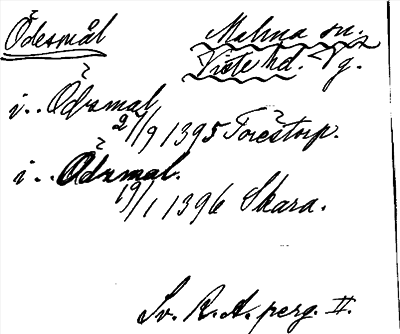 Ödesmål Malma sn.
Viste hd. Vg.
i.. Ödzmal
2/9 1395 Torestorp.
i.. Ödzmal.
19/1 1396 Skara.
Sv. R. A. perg. II.